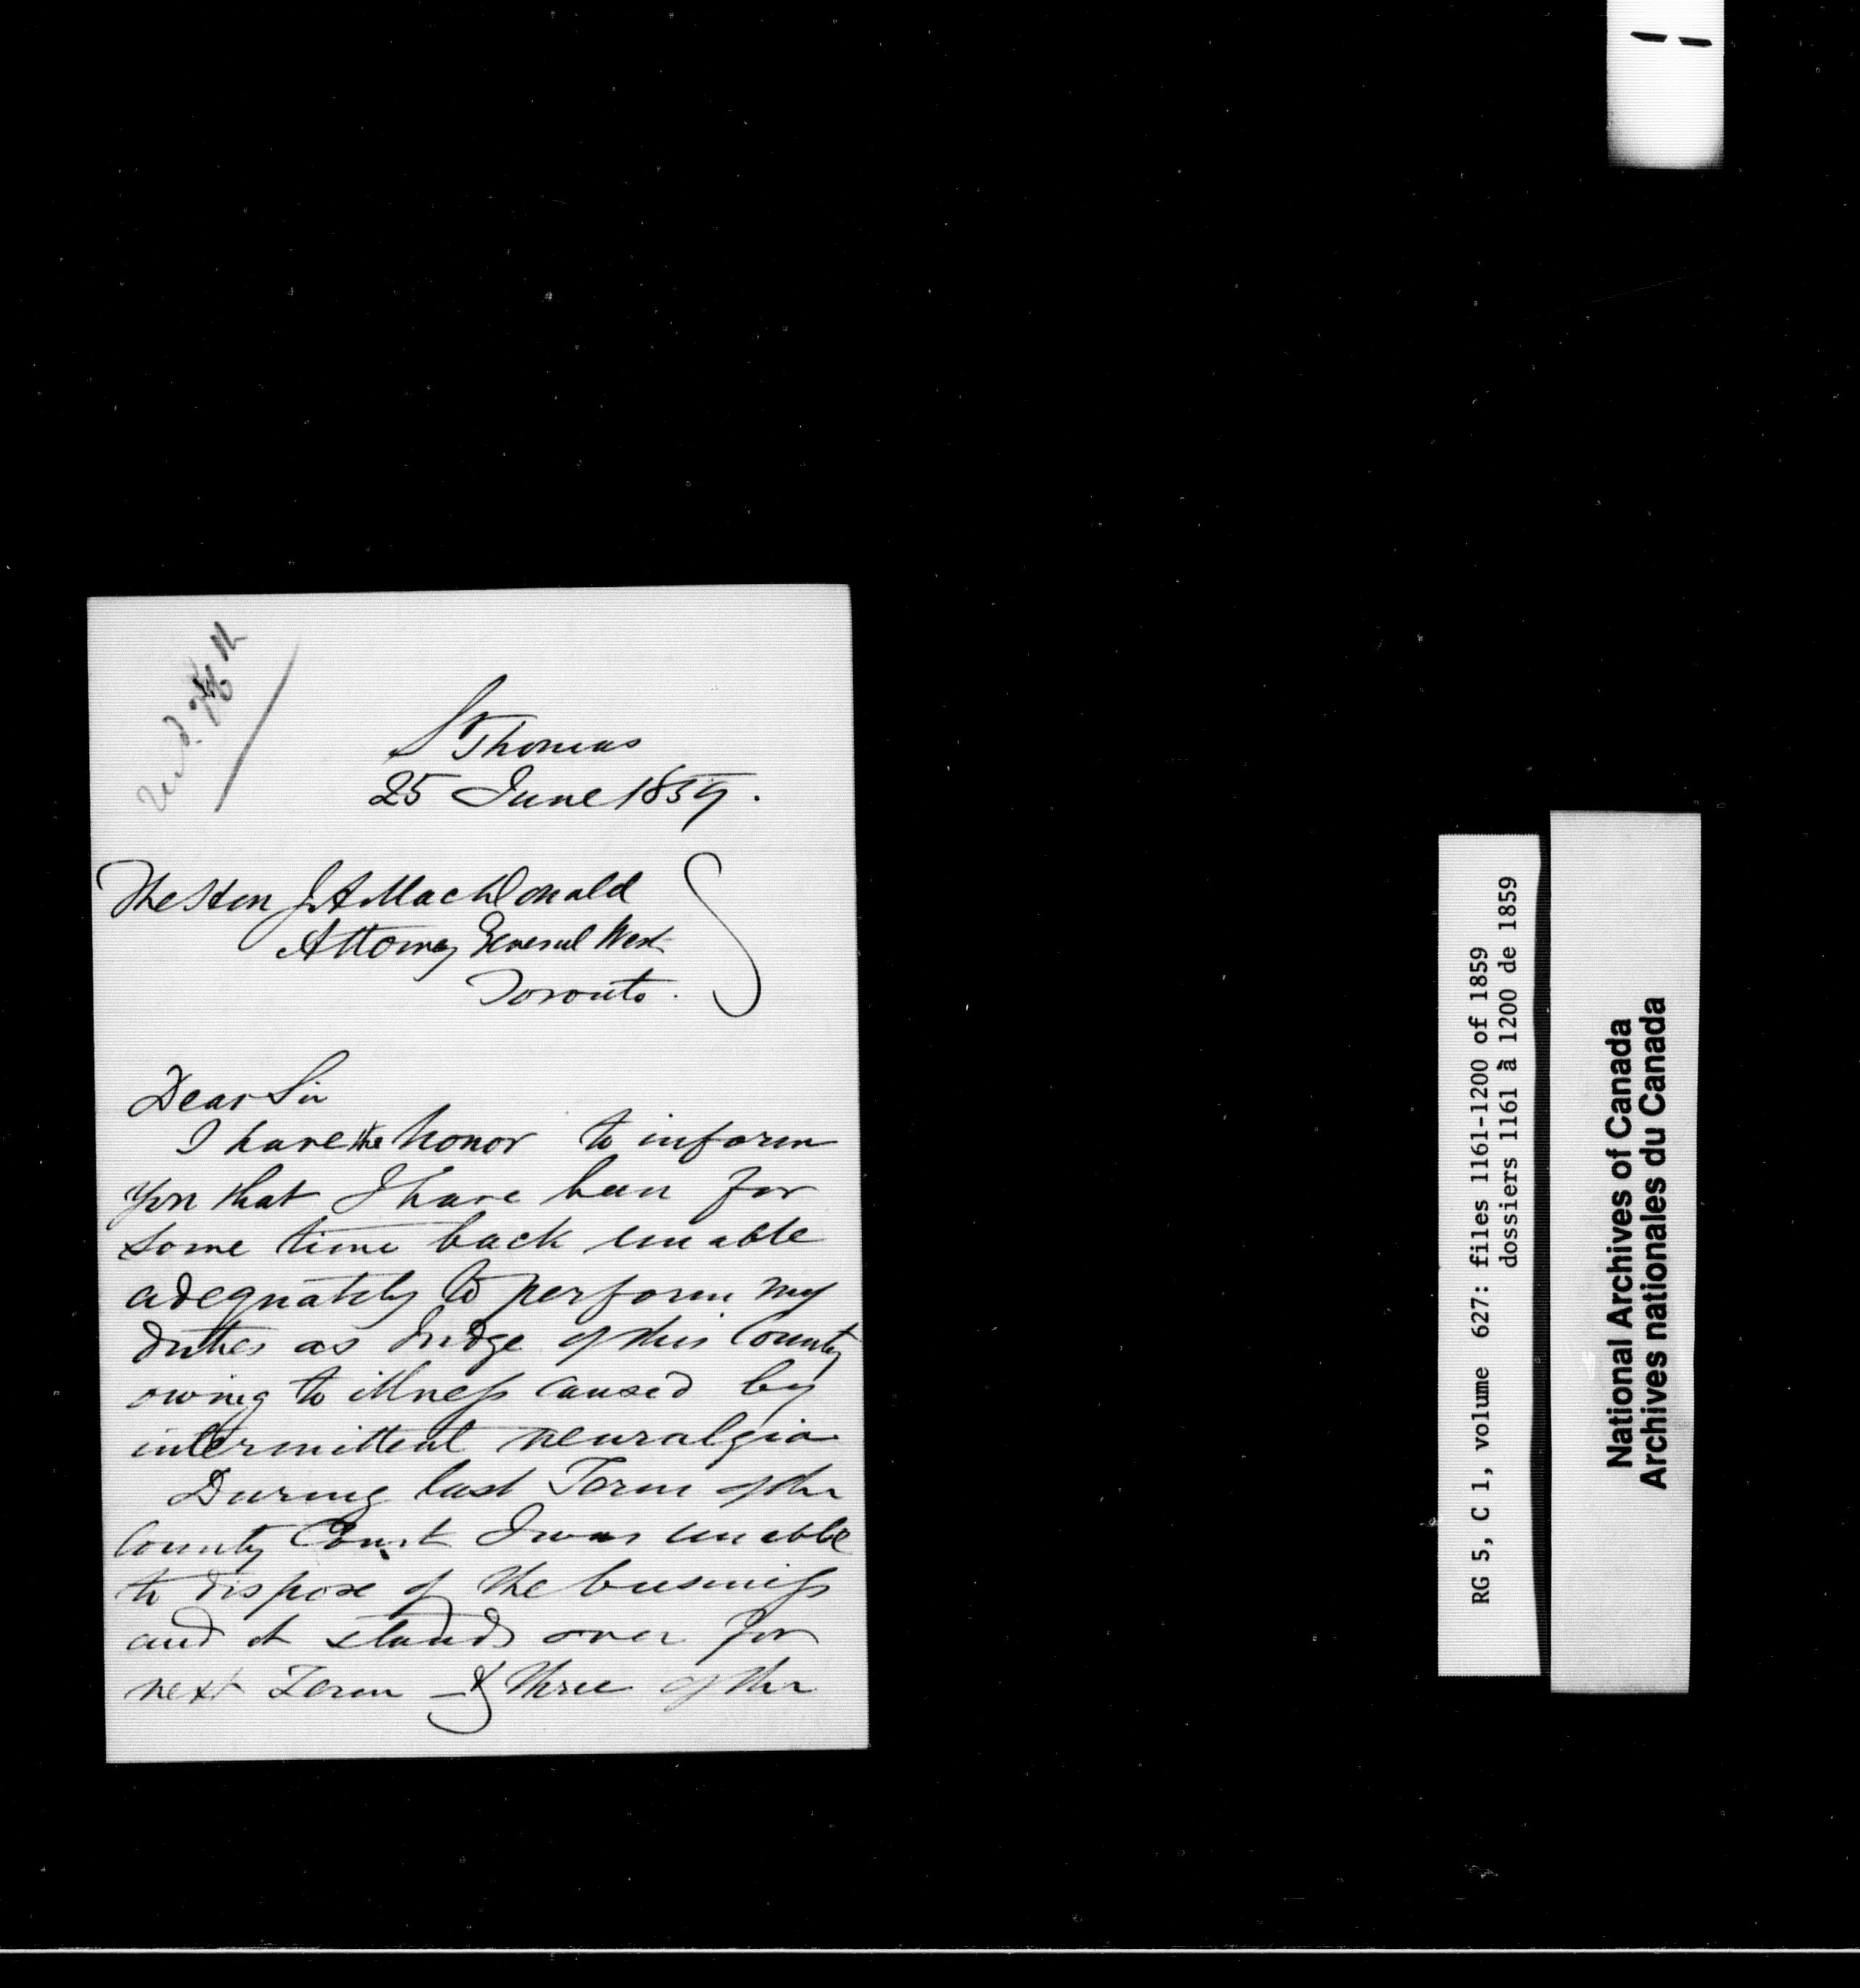 St Thomas
25 June 1859.
The Hon J. A MacDonald
Attorney General West
Toronto.
Dear Sir
I have the honor to inform
you that I have been for
some time back unable
adequately to perform my
duties as Judge of this County
owing to illness caused by
intermittent neuralgia
During last Term of the
County Court I was unable
to dispose of the business
and it stands over for
next Term - & three of the
RG 5, C 1, volume 627: files 1161-1200 of 1859
dossiers 1161 à 1200 de 1859
National Archives of Canada
Archives nationales du Canada